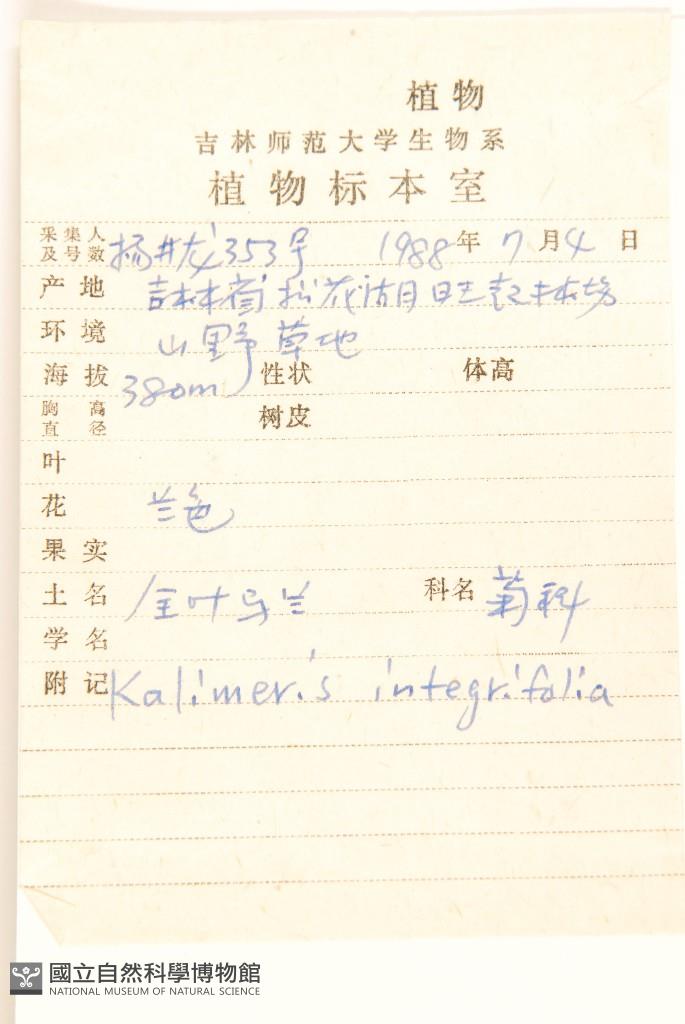 植物
吉林师范大学生物系
植物标本室
采集人及号数 杨井龙 353号 1988年 7月 4日
产地 吉林省松花湖
环境 山野草地
海拔 380m 性状 体高
胸高直径 树皮
叶
花 兰色
果实
土名 全叶马兰 科名 菊科
学名
附记 Kalimeris integrifolia
國立自然科學博物館
NATIONAL MUSEUM OF NATURAL SCIENCE